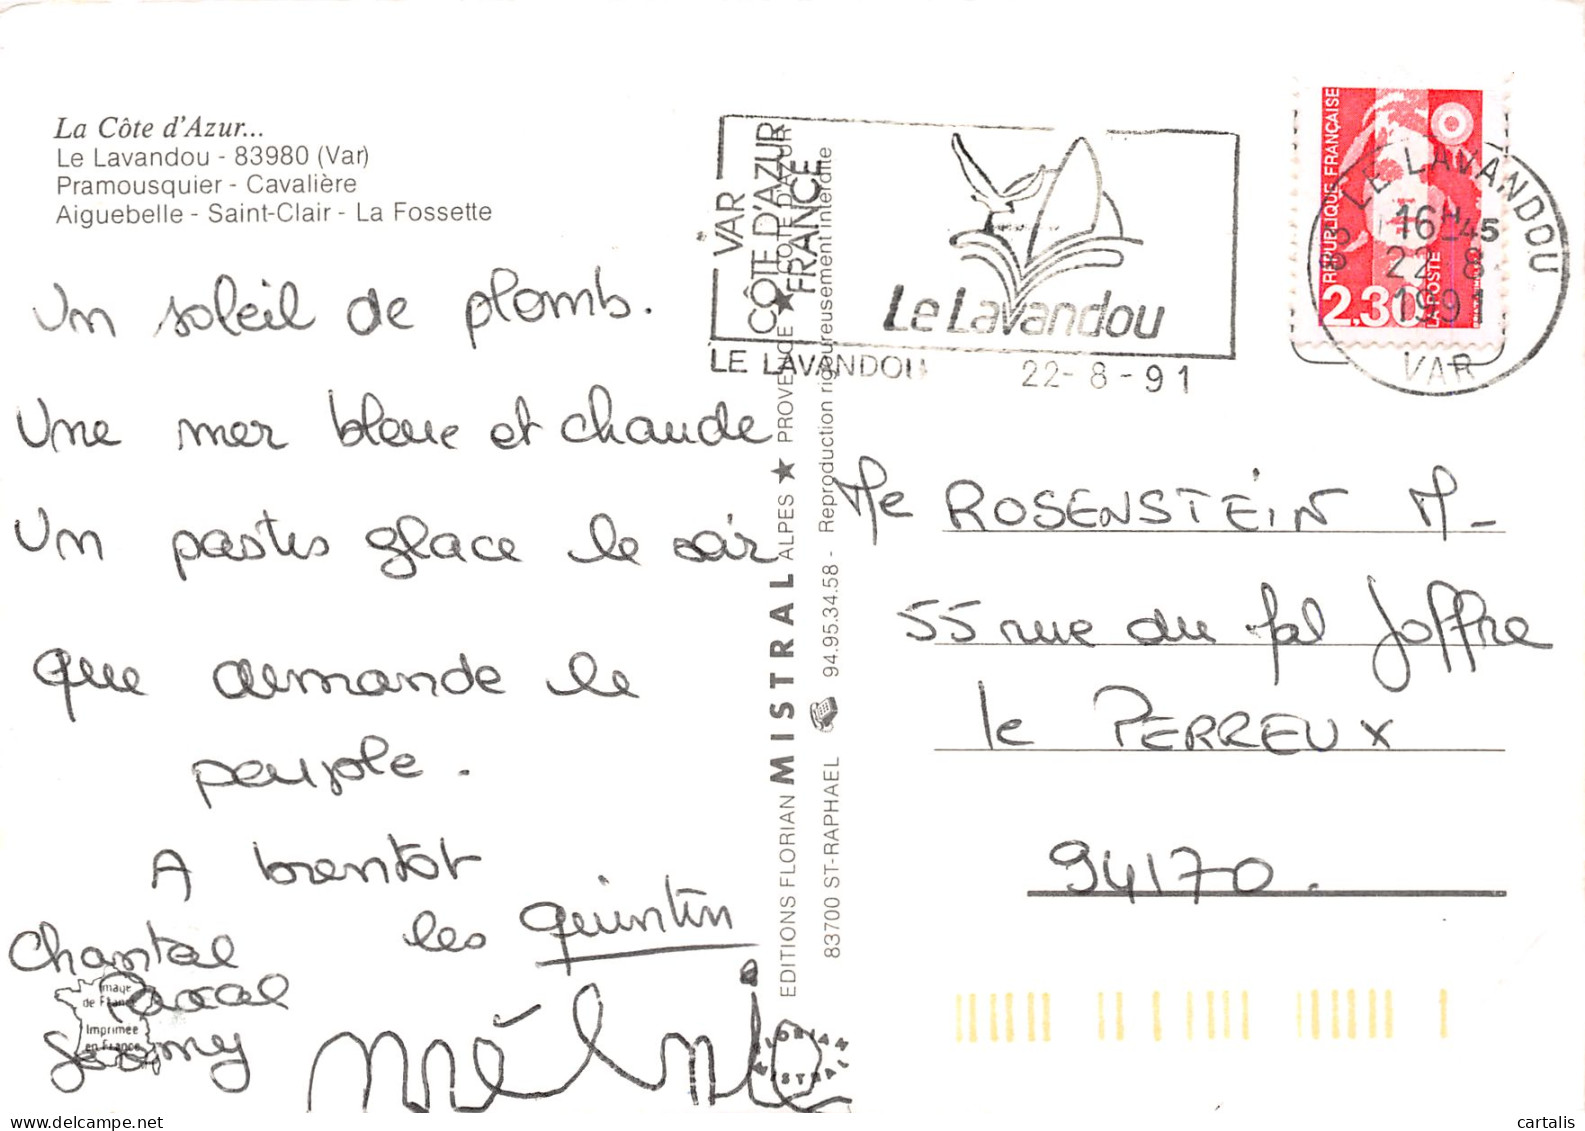 La Côte d'Azur...
Le Lavandou - 83980 (Var)
Pramousquier - Cavalière
Aiguebelle - Saint-Clair - La Fossette
Un soleil de plomb.
Une mer bleue et chaude
Un pastis glace le soir
que demande le
peuple.
A bientot
les Quintin
Chantal
Pascal
Jeremy
mélanie
Image
de France
Imprimée
en France
VAR
CÔTE D'AZUR
FRANCE
Le Lavandou
LE LAVANDOU
22-8-91
EDITIONS FLORIAN MISTRAL ALPES ★ PROVENCE ★ CÔTE D'AZUR
83700 ST-RAPHAEL 94.95.34.58 - Reproduction rigoureusement interdite
FLORIAN
MISTRAL
REPUBLIQUE FRANÇAISE
2,30
LA POSTE
83 LE LAVANDOU
16H45
22-8
1991
VAR
Me ROSENSTEIN M-
55 rue du Gal Joffre
le PERREUX
94170.
cartalis